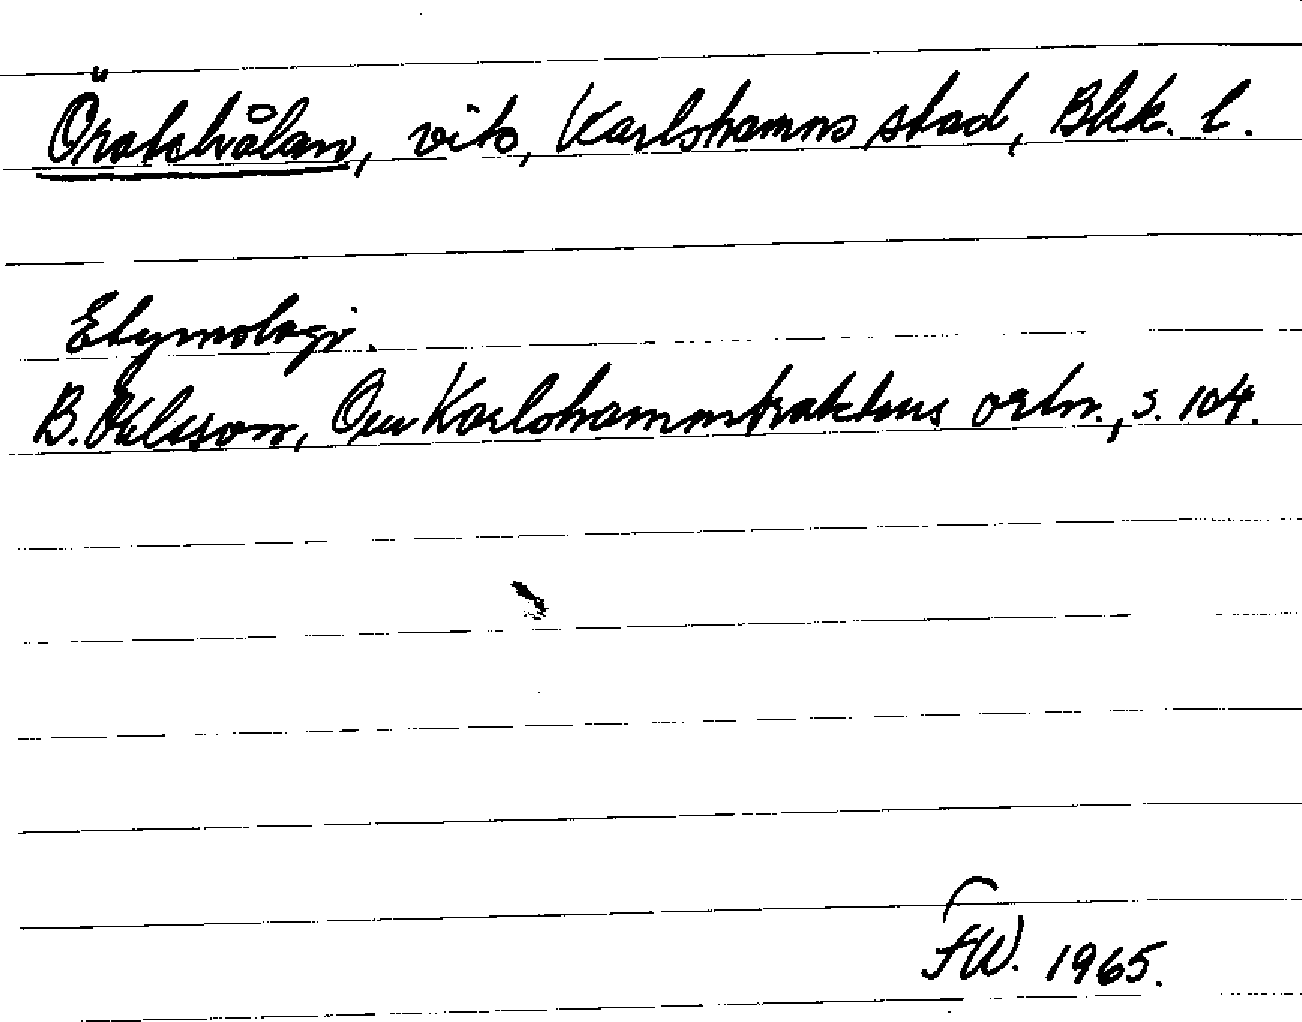 Öratchvålan, vik, Karlshamns stad, Blek. l.
Etymologi.
B. Ohlsson, Om Karlshamnstraktens ortn., s. 104.
FW. 1965.